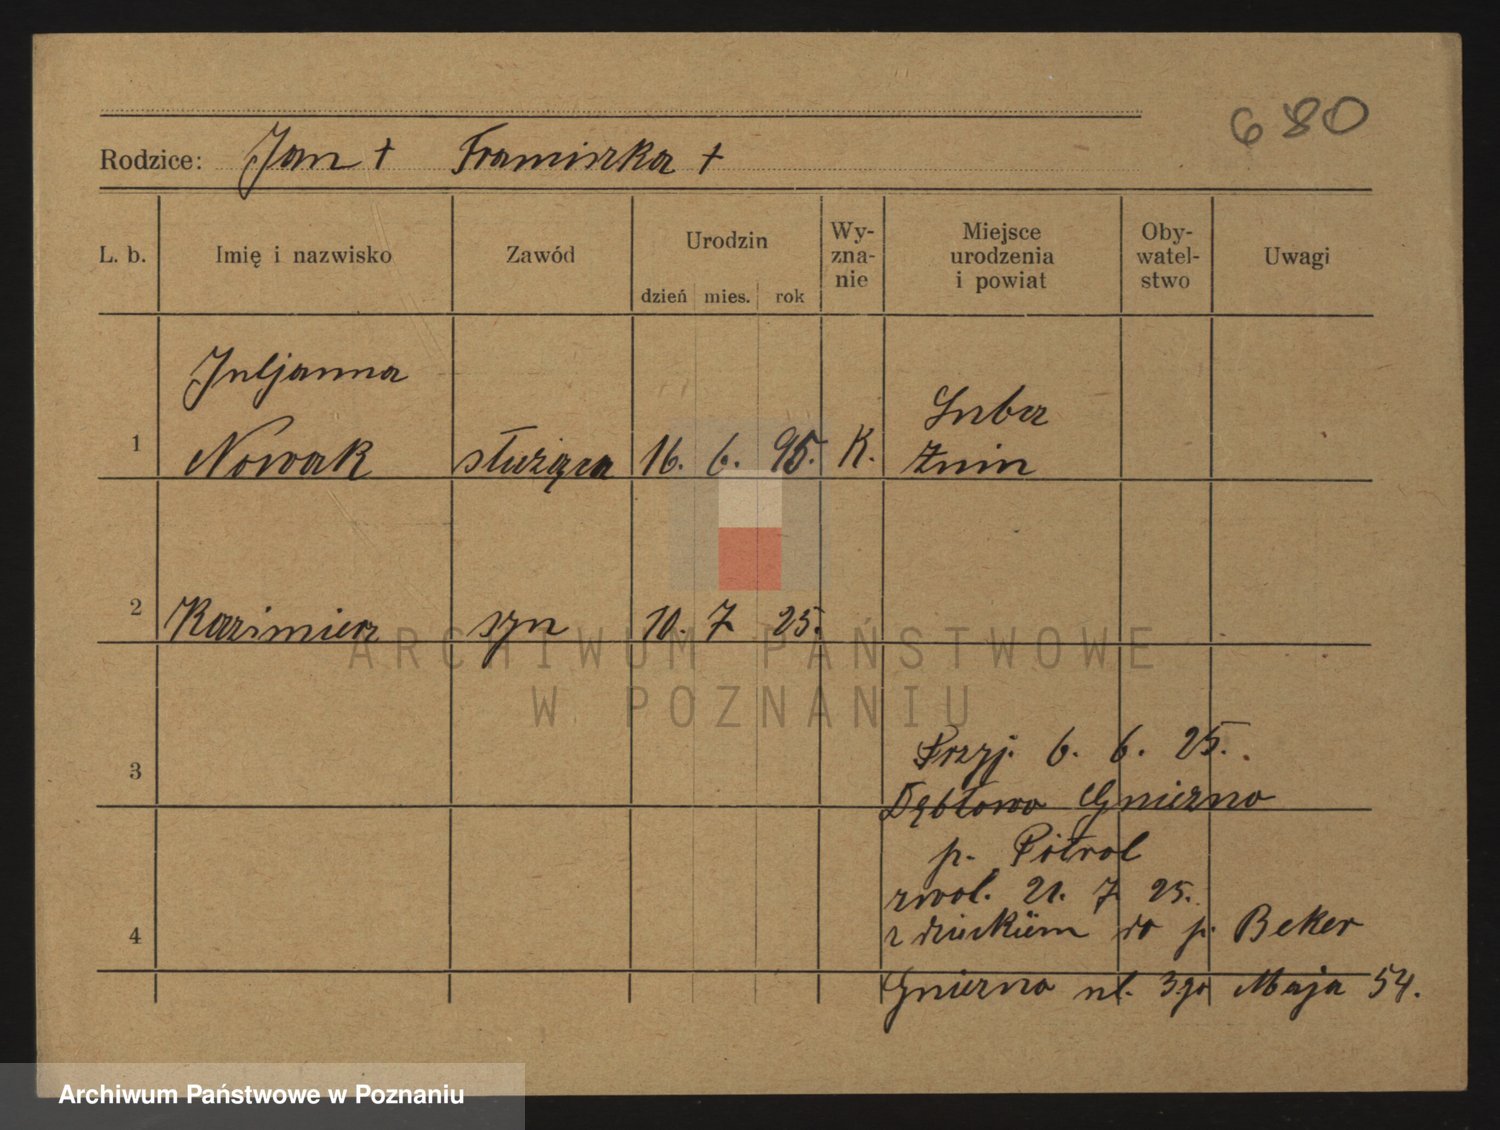 680
Rodzice: Jan † Franciszka †
L. b. Imię i nazwisko Zawód Urodzin dzień mies. rok Wy-zna-nie Miejsce urodzenia i powiat Oby-watel-stwo Uwagi
Juljanna
1 Nowak służąca 16. 6. 95. K. Żnin
2 Kazimierz syn 10. 7 25.
ARCHIWUM PAŃSTWOWE
W POZNANIU
3 Przyj. 6. 6. 25.
Dębłowo Gniezno
p.
zwol. 21. 7 25.
4 z dzieckiem do p. Beker
Gniezno ul. 3go Maja 54.
Archiwum Państwowe w Poznaniu